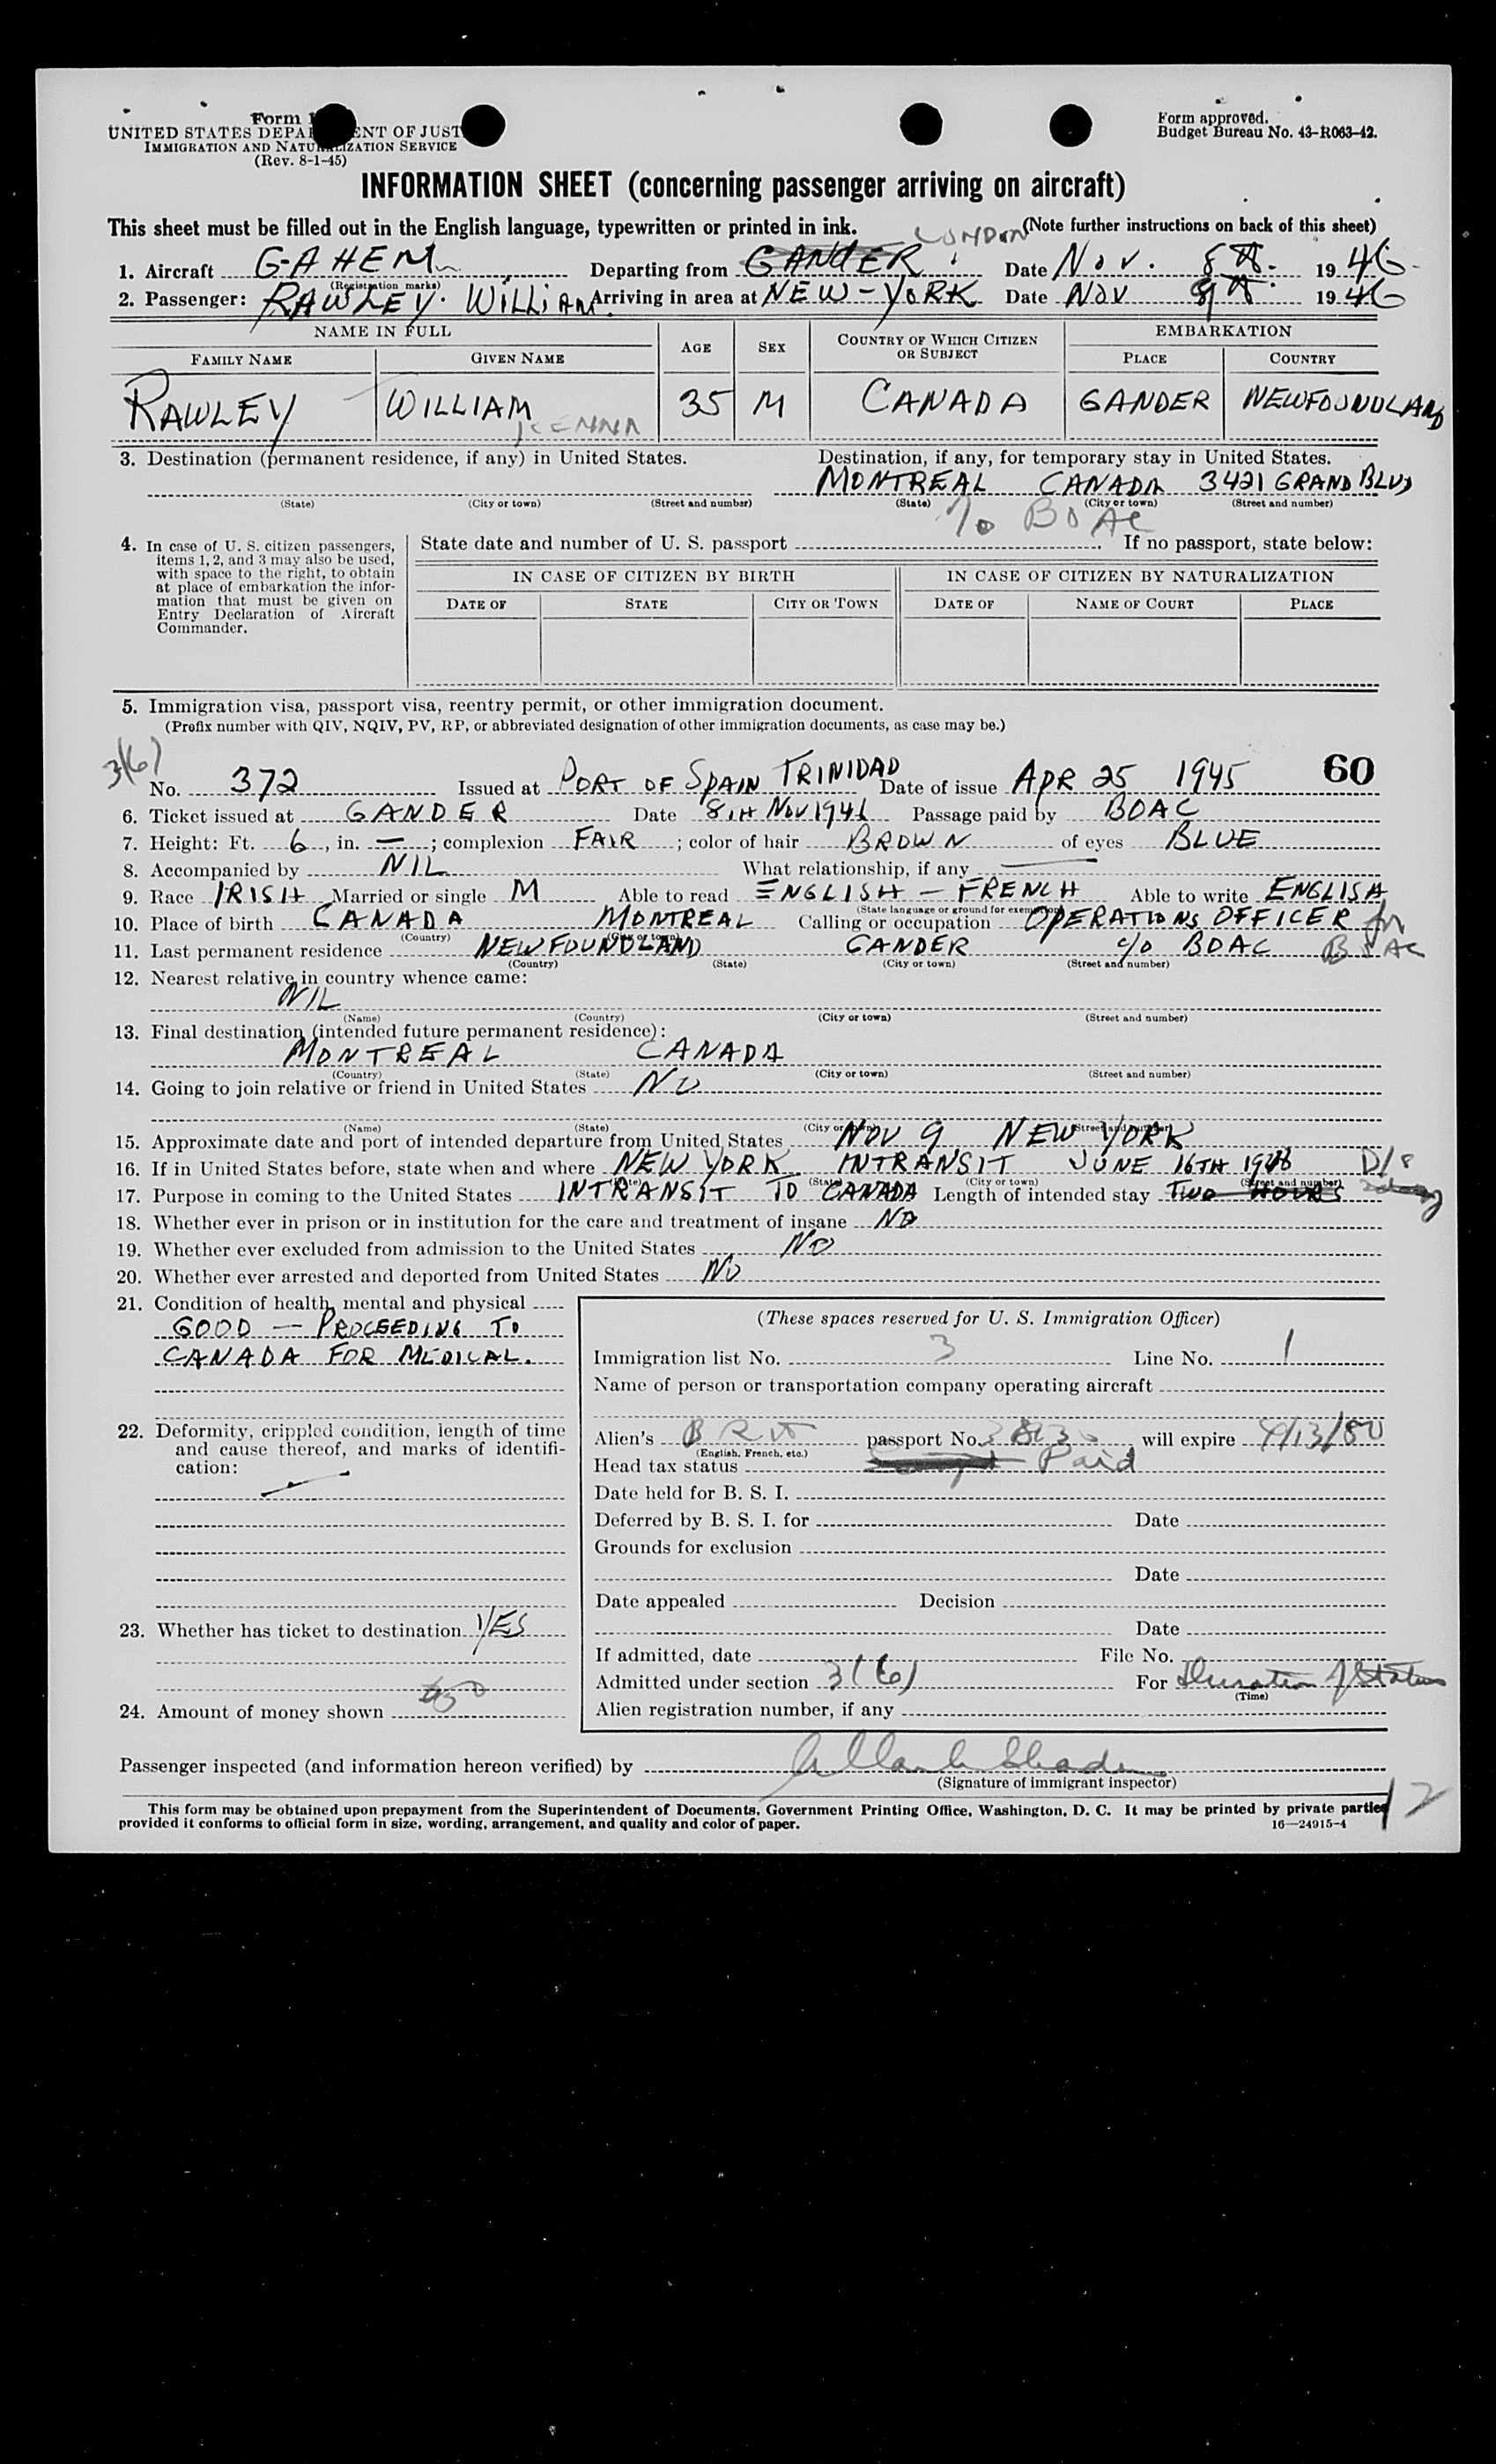 Form
UNITED STATES DEPA ENT OF JUST
IMMIGRATION AND NATURALIZATION SERVICE
(Rev. 8-1-45)
Form approved.
Budget Bureau No. 43-R063-42.
INFORMATION SHEET (concerning passenger arriving on aircraft)
This sheet must be filled out in the English language, typewritten or printed in ink. (Note further instructions on back of this sheet)
LONDON
1. Aircraft G-AHEM Departing from GANDER Date Nov. 8th 1946
(Registration marks)
2. Passenger: RAWLEY. WILLIAM. Arriving in area at NEW-YORK Date Nov 1946
NAME IN FULL AGE SEX COUNTRY OF WHICH CITIZEN OR SUBJECT EMBARKATION
FAMILY NAME GIVEN NAME PLACE COUNTRY
RAWLEY WILLIAM 35 M CANADA GANDER NEWFOUNDLAND
KENNA
3. Destination (permanent residence, if any) in United States. Destination, if any, for temporary stay in United States.
MONTREAL CANADA 3421 GRAND BLVD
(State) (City or town) (Street and number) (State) (City or town) (Street and number)
% BOAC
4. In case of U. S. citizen passengers, items 1, 2, and 3 may also be used, with space to the right, to obtain at place of embarkation the information that must be given on Entry Declaration of Aircraft Commander.
State date and number of U. S. passport If no passport, state below:
IN CASE OF CITIZEN BY BIRTH IN CASE OF CITIZEN BY NATURALIZATION
DATE OF STATE CITY OR TOWN DATE OF NAME OF COURT PLACE
5. Immigration visa, passport visa, reentry permit, or other immigration document.
(Prefix number with QIV, NQIV, PV, RP, or abbreviated designation of other immigration documents, as case may be.)
3(6) 60
No. 372 Issued at PORT OF SPAIN TRINIDAD Date of issue APR 25 1945
6. Ticket issued at GANDER Date 8TH NOV 1946 Passage paid by BOAC
7. Height: Ft. 6, in. —; complexion FAIR; color of hair BROWN of eyes BLUE
8. Accompanied by NIL What relationship, if any —
9. Race IRISH Married or single M Able to read ENGLISH — FRENCH Able to write ENGLISH
(State language or ground for exemption)
10. Place of birth CANADA MONTREAL Calling or occupation OPERATIONS OFFICER for
(Country) (City or town)
11. Last permanent residence NEWFOUNDLAND GANDER c/o BOAC BOAC
(Country) (State) (City or town) (Street and number)
12. Nearest relative in country whence came:
NIL
(Name) (Country) (City or town) (Street and number)
13. Final destination (intended future permanent residence):
MONTREAL CANADA
(Country) (State) (City or town) (Street and number)
14. Going to join relative or friend in United States NO
(Name) (State) (City or town) (Street and number)
15. Approximate date and port of intended departure from United States NOV 9 NEW YORK
16. If in United States before, state when and where NEW YORK INTRANSIT JUNE 16TH D/S
(Date) (State) (City or town) (Street and number)
17. Purpose in coming to the United States INTRANSIT TO CANADA Length of intended stay TWO HOURS
18. Whether ever in prison or in institution for the care and treatment of insane NO
19. Whether ever excluded from admission to the United States NO
20. Whether ever arrested and deported from United States NO
21. Condition of health, mental and physical
GOOD — PROCEEDING TO
CANADA FOR MEDICAL.
22. Deformity, crippled condition, length of time and cause thereof, and marks of identification:
—
23. Whether has ticket to destination YES
24. Amount of money shown
(These spaces reserved for U. S. Immigration Officer)
Immigration list No. 3 Line No. 1
Name of person or transportation company operating aircraft
Alien's Brit passport No. will expire 4/13/50
(English, French, etc.)
Head tax status Paid
Date held for B. S. I.
Deferred by B. S. I. for Date
Grounds for exclusion
Date
Date appealed Decision
Date
If admitted, date File No.
Admitted under section 3(6) For Duration of Status
(Time)
Alien registration number, if any
Passenger inspected (and information hereon verified) by
(Signature of immigrant inspector)
12
This form may be obtained upon prepayment from the Superintendent of Documents, Government Printing Office, Washington, D. C. It may be printed by private parties
provided it conforms to official form in size, wording, arrangement, and quality and color of paper. 16—24915-4